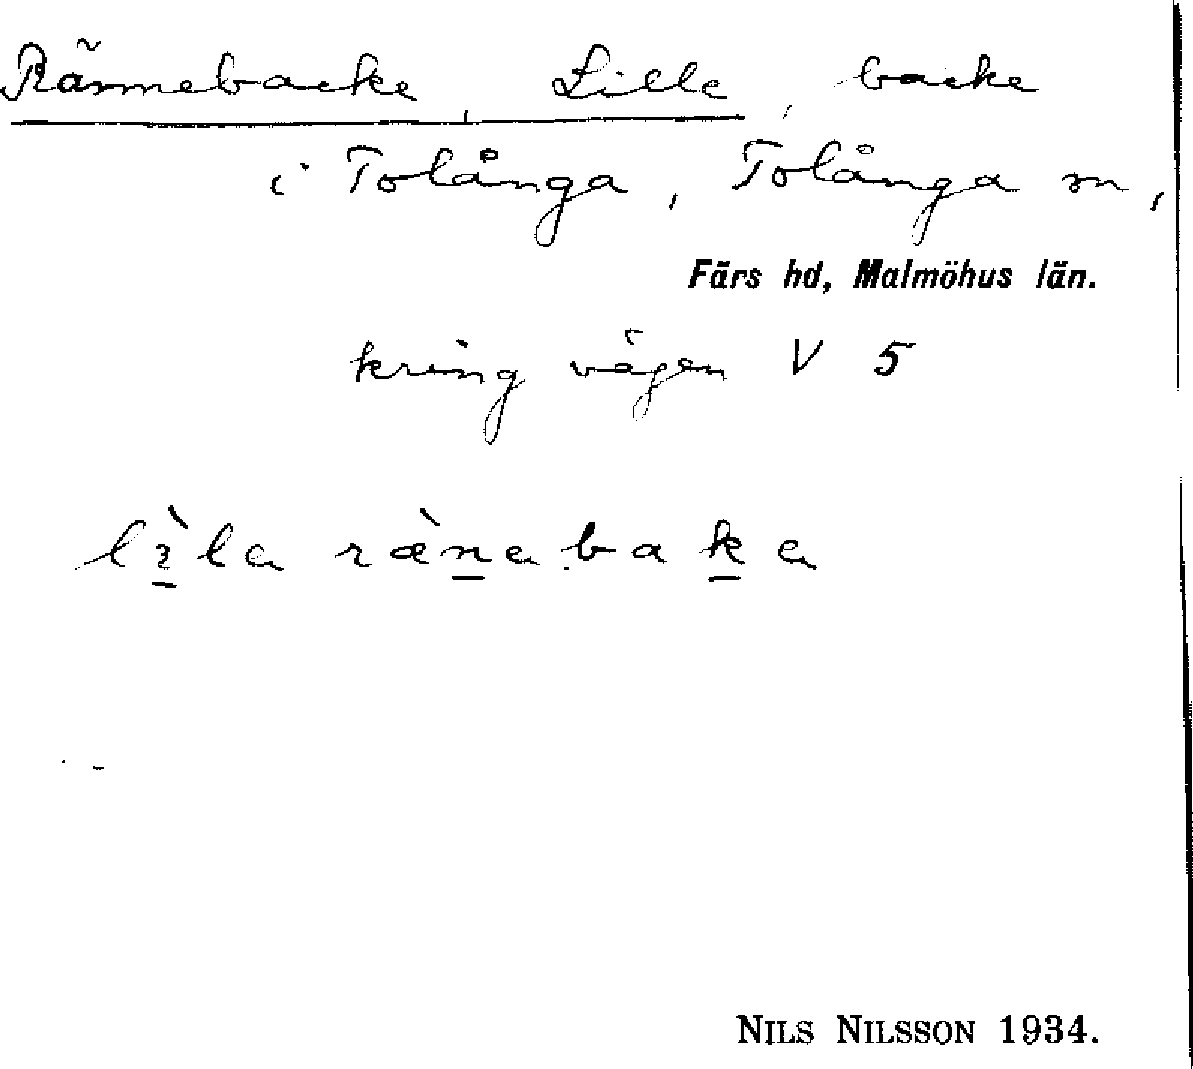 Rännebacke, Lille, backe
i Tolånga, Tolånga sn,
Färs hd, Malmöhus län.
kring vägen V 5
lìla rænabaka
NILS NILSSON 1934.